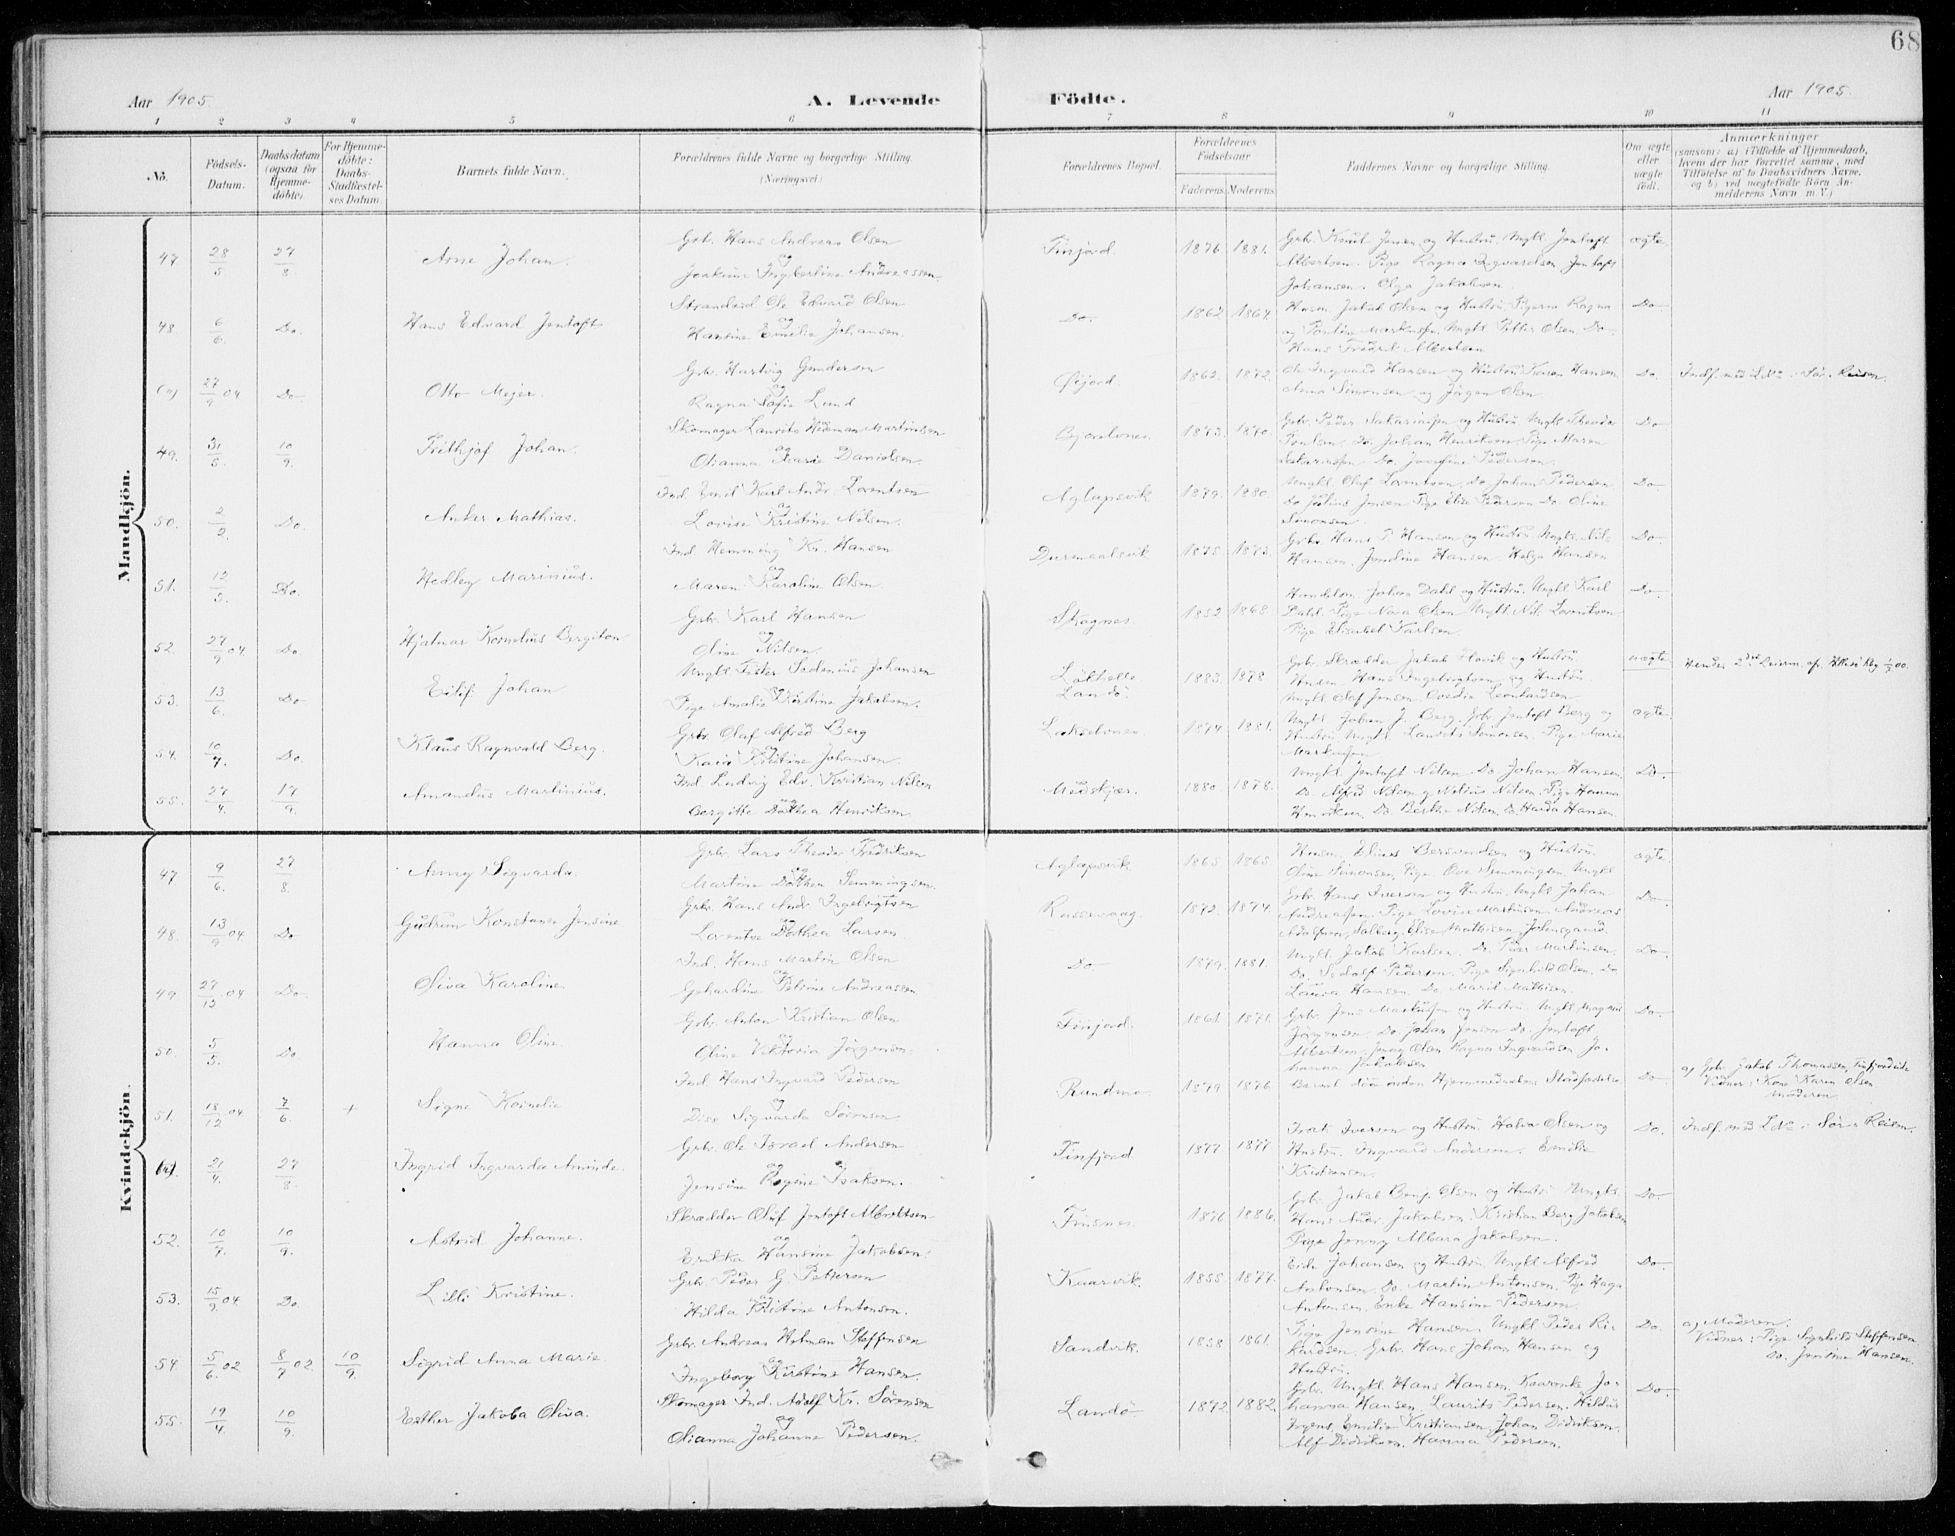 68
Aar 1905.
A. Levende Födte.
Aar 1905.
1 2 3 4 5 6 7 8 9 10 11
No.
Födsels-Datum.
Daabsdatum (ogsaa for Hjemmedöbte).
For Hjemmedöbte: Daabs-Stadfæstelses Datum.
Barnets fulde Navn.
Forældrenes fulde Navne og borgerlige Stilling.
(Næringsvei.)
Forældrenes Bopæl.
Forældrenes Födselsaar
Faderens. Moderens.
Faddernes Navne og borgerlige Stilling.
Om ægte eller uægte födt.
Anmærkninger
(saasom: a) i Tilfælde af Hjemmedaab,
hvem der har forrettet samme, med
Tilföielse af to Daabsvidners Navne,
og b) ved uægtefödte Börn Anmelderens Navn m. V.)
Mandkjön.
47 28/5 27/8 Arne Johan.
Grb. Hans Andreas Olsen
og
Joakime Ingbertine Andreassen.
Finjord. 1876 1881.
Grb. Knut Jensen og Hustru. Ungkl Jentoft
Albertsen. Pige Ragna Ingvardsen Jentoft
Johansen. Olga Jakobsen.
ægte
48 6/6 Do. Hans Edvard Jentoft
Strandsid Ole Edvard Olsen
og
Hansine Emelie Johansen.
Do. 1862 1864.
Husm. Jakob Olsen og Hustru. Pigerne Ragna
Hans Fredrik Albertsen
Do.
27/9 04 Do. Otto Mejer.
Grb. Hartvig Gundersen
og
Ragna Sofie Lund
Øijord. 1862. 1872.
Ole Ingvard Hansen og Hustru Karen Hansen
Anna Simonsen og Jörgen Olsen
Do. Indf. med L. No i Sör-Reisen.
49. 31/5 10/9. Frithjof Johan.
Skomager Laurits Hedeman Martinsen
og
Olianna Marie Danielsen.
Bjorelvnes. 1873. 1870.
Grb. Peder Sakariassen og Hustru Ungkl Theodor
Poulsen, Do. Johan Henriksen Pige Maren
Sakariassen Do. Josefine Pedersen.
Do
50. 2/2. Do. Anker Mathias.
Ind. Emil Karl Andr. Lorentsen
og
Lovise Kristine Nilsen.
Aglapsvik 1879. 1880.
Ungkl Oluf Lorentsen, Do Johan Pedersen
Do Julius Jensen Pige Elise Pedersen Do Oline
Simonsen.
Do
51. 12/5. Do. Hedley Marinius.
Ind. Hemming Kr. Hansen
og
Maren Karoline Olsen.
Durmaalsvik 1875. 1873.
Grb. Hans P. Hansen og Hustru Ungkl. Nils
Hansen, Jendine Hansen. Helga Hansen
Do.
52. 27/9 04. Do. Hjalmar Kornelius Bergiton
Grb. Karl Hansen
og
Oline Nilsen.
Skognes. 1852 1868.
Johan Dahl og Hustru. Ungkl Karl
Dahl. Pige Nora Olsen Ungkl Nils Lorentsen
Pige Elisabet Karlsen.
Do.
53. 13/6. Do Eilif Johan
Ungkl Peter Sedenius Johansen
og
Pige Amalie Kristine Jakobsen.
Landö 1883. 1878
Grb. Skrædder Jakob Hovik og Hustru
Husm. Hans Ingebrigtsen og Hustru
Ungkl Olaf Jensen Ovedia Leonhardsen
uægte
54. 10/7. Do. Klaus Ragnvald Berg.
Grb. Olaf Alfred Berg
og
Kaia Kristine Johansen.
Lakselvnes 1874 1881.
Ungkl. Johan J. Berg. Grb. Jentoft Berg og
Hustru Ungkl Laurits Simonsen. Pige Marie
Markussen
ægte.
55. 27/4. 17/9. Amandus Martinius.
Ind Ludvig Edv. Kristian Nilsen
og
Bergitte Dorthea Henriksen
Medskjær. 1880. 1878.
Ungkl. Jentoft Nilsen Do Johan Hansen.
Do. Alfred Nilsen og Nilsen. Pige Hanna
Henriksen, Do. Berthe Nilsen, Do Halda Hansen.
Do.
Kvindekjön.
47 9/6. 27/8. Anny Sigvarda.
Grb. Lars Theodor Fredriksen
og
Martine Dorthea Simmingsen.
Aglapsvik 1865 1865.
Husm. Elias Bersvendsen og Hustru.
Oline Simonsen, Pige Ove Simmingsen, Ungkl
ægte
48. 13/9 04. Do Gudrun Konstanse Jensine
Grb. Hans Andr. Ingebrigtsen
og
Lorentse Dorthea Larsen
Russevaag. 1872. 1874.
Grb Hans Iversen og Hustru. Ungkl Johan
Andreassen, Pige Lovise Martinsen, Andreas
Do.
49 27/12 04 Do. Oliva Karoline
Ind. Hans Martin Olsen
og
Gehardine Petrine Andreassen
Do. 1879. 1881.
Ungkl. Jakob Karlsen. Do. Peder Martinsen.
Do. Sedolf Pedersen. Pige Signhild Olsen, Do
Laura Hansen. Do. Marit Mathisen.
Do.
50. 5/5. Do Hanna Oline.
Grb. Anton Kristian Olsen
og
Oline Viktoria Jörgensen.
Finjord. 1861. 1871.
Grb. Jens Markussen og Hustru. Ungkl. Magnus
Jörgensen. Do Johan Jensen Do. Jentoft
Albertsen. Jenny Olsen Ragna Ingvardsen Johanna Jakobsen
Do.
51. 18/12 04 7/6. + Signe Kornelie
Ind Hans Ingvard Pedersen
og
Dise Sigvarda Sörensen.
Rundmo. 1879 1876.
Barnet döde inden Hjemmedaabens Stadfæstelse
Do.
a) Grb. Jakob Thomassen, Finfjordeide
Vidner: Kone Karen Olsen
Moderen.
21/4. 27/8 Ingrid Ingvarda Aminde.
Grb. Ole Israel Andersen
og
Jensine Regine Isaksen.
Finfjord 1877 1877
Isak Iversen og Hustru Olsen og
Hustru. Ingvard Andersen. Emilie
Kristiansen.
Do. Indf. med L. No i Sör-Reisen.
52. 10/7. 10/9. Astrid Johanne.
Skrædder Oluf Jentoft Albrektsen
og
Erikka Hansine Jakobsen.
Finsnes. 1876 1886.
Grb. Jakob Benj. Olsen og Hustru Ungkl.
Hans Andr. Jakobsen. Kristian Berg Jakobsen
Pige Jenny Albara Jakobsen.
Do.
53. 15/9 04 Do. Lilli Kristine.
Grb. Peder G. Pettersen
og
Hilda Kristine Antonsen.
Kaarvik. 1855. 1877.
Johansen og Hustru. Ungkl Alfred
Antonsen. Do. Martin Antonsen. Pige Haga
Antonsen. Enke Hansine Pedersen.
Do.
54. 5/6 02 8/7 02. 10/9. Sigrid Anna Marie
Grb. Andreas Holman Steffensen
og
Ingeborg Kirstine Hansen.
Sandvik. 1858 1861.
Pige Jensine Hansen. Ungkl. Peder Rikardsen. Grb. Hans Johan Hansen og
Hustru.
Do.
a) Moderen.
Vidner: Pige Signhild Steffensen
Do. Jensine Hansen.
55. 19/4. 10/9. Esther Jakoba Oliva.
Skomager Ind. Adolf Kr. Sörensen
og
Olianna Johanne Pedersen.
Landö 1872 1882.
Grb. Ungkl. Hans Hansen, Johanna Hansen, Laurits Pedersen,
Emilie Kristiansen, Johan Didriksen
Alf Didriksen. Hanna Pedersen.
Do.